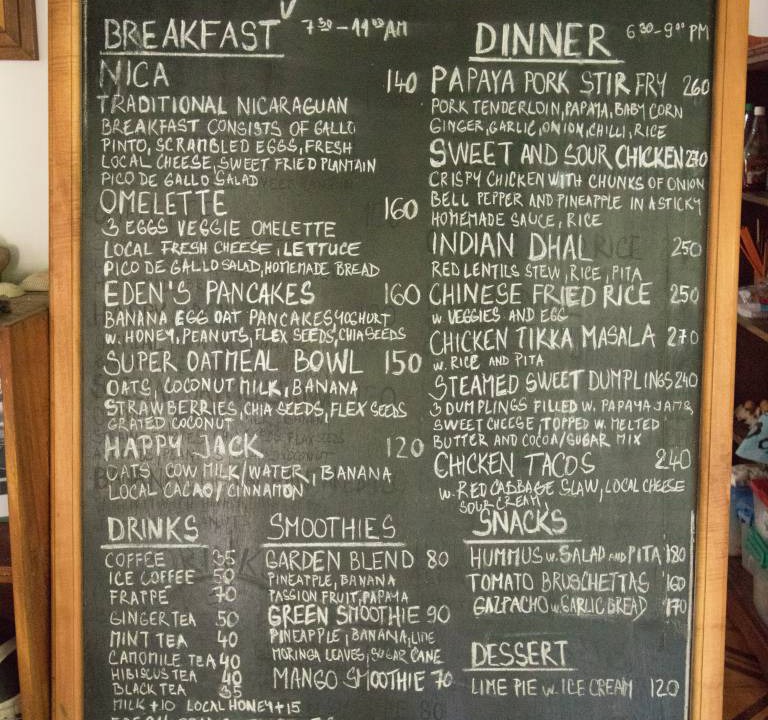 BREAKFAST 7:30-11:00 AM
NICA 140
TRADITIONAL NICARAGUAN
BREAKFAST CONSISTS OF GALLO
PINTO, SCRAMBLED EGGS, FRESH
LOCAL CHEESE, SWEET FRIED PLANTAIN
PICO DE GALLO SALAD
OMELETTE 160
3 EGGS VEGGIE OMELETTE
LOCAL FRESH CHEESE, LETTUCE
PICO DE GALLO SALAD, HOMEMADE BREAD
EDEN'S PANCAKES 160
BANANA EGG OAT PANCAKES, YOGHURT
W. HONEY, PEANUTS, FLEX SEEDS, CHIA SEEDS
SUPER OATMEAL BOWL 150
OATS, COCONUT MILK, BANANA
STRAWBERRIES, CHIA SEEDS, FLEX SEEDS
GRATED COCONUT
HAPPY JACK 120
OATS, COW MILK/WATER, BANANA
LOCAL CACAO/CINNAMON
DRINKS
COFFEE 35
ICE COFFEE 50
FRAPPE 70
GINGER TEA 50
MINT TEA 40
CAMOMILE TEA 40
HIBISCUS TEA 40
BLACK TEA 35
MILK +10 LOCAL HONEY +15
SMOOTHIES
GARDEN BLEND 80
PINEAPPLE, BANANA
PASSION FRUIT, PAPAYA
GREEN SMOOTHIE 90
PINEAPPLE, BANANA, LIME
MORINGA LEAVES, SUGAR CANE
MANGO SMOOTHIE 70
DINNER 6:30-9:00 PM
PAPAYA PORK STIR FRY 260
PORK TENDERLOIN, PAPAYA, BABY CORN
GINGER, GARLIC, ONION, CHILLI, RICE
SWEET AND SOUR CHICKEN 270
CRISPY CHICKEN WITH CHUNKS OF ONION
BELL PEPPER AND PINEAPPLE IN A STICKY
HOMEMADE SAUCE, RICE
INDIAN DHAL 250
RED LENTILS STEW, RICE, PITA
CHINESE FRIED RICE 250
W. VEGGIES AND EGG
CHICKEN TIKKA MASALA 270
W. RICE AND PITA
STEAMED SWEET DUMPLINGS 240
3 DUMPLINGS FILLED W. PAPAYA JAM &
SWEET CHEESE, TOPPED W. MELTED
BUTTER AND COCOA/SUGAR MIX
CHICKEN TACOS 240
W. RED CABBAGE SLAW, LOCAL CHEESE
SOUR CREAM,
SNACKS
HUMMUS W. SALAD AND PITA 180
TOMATO BRUSCHETTAS 160
GAZPACHO W. GARLIC BREAD 170
DESSERT
LIME PIE W. ICE CREAM 120